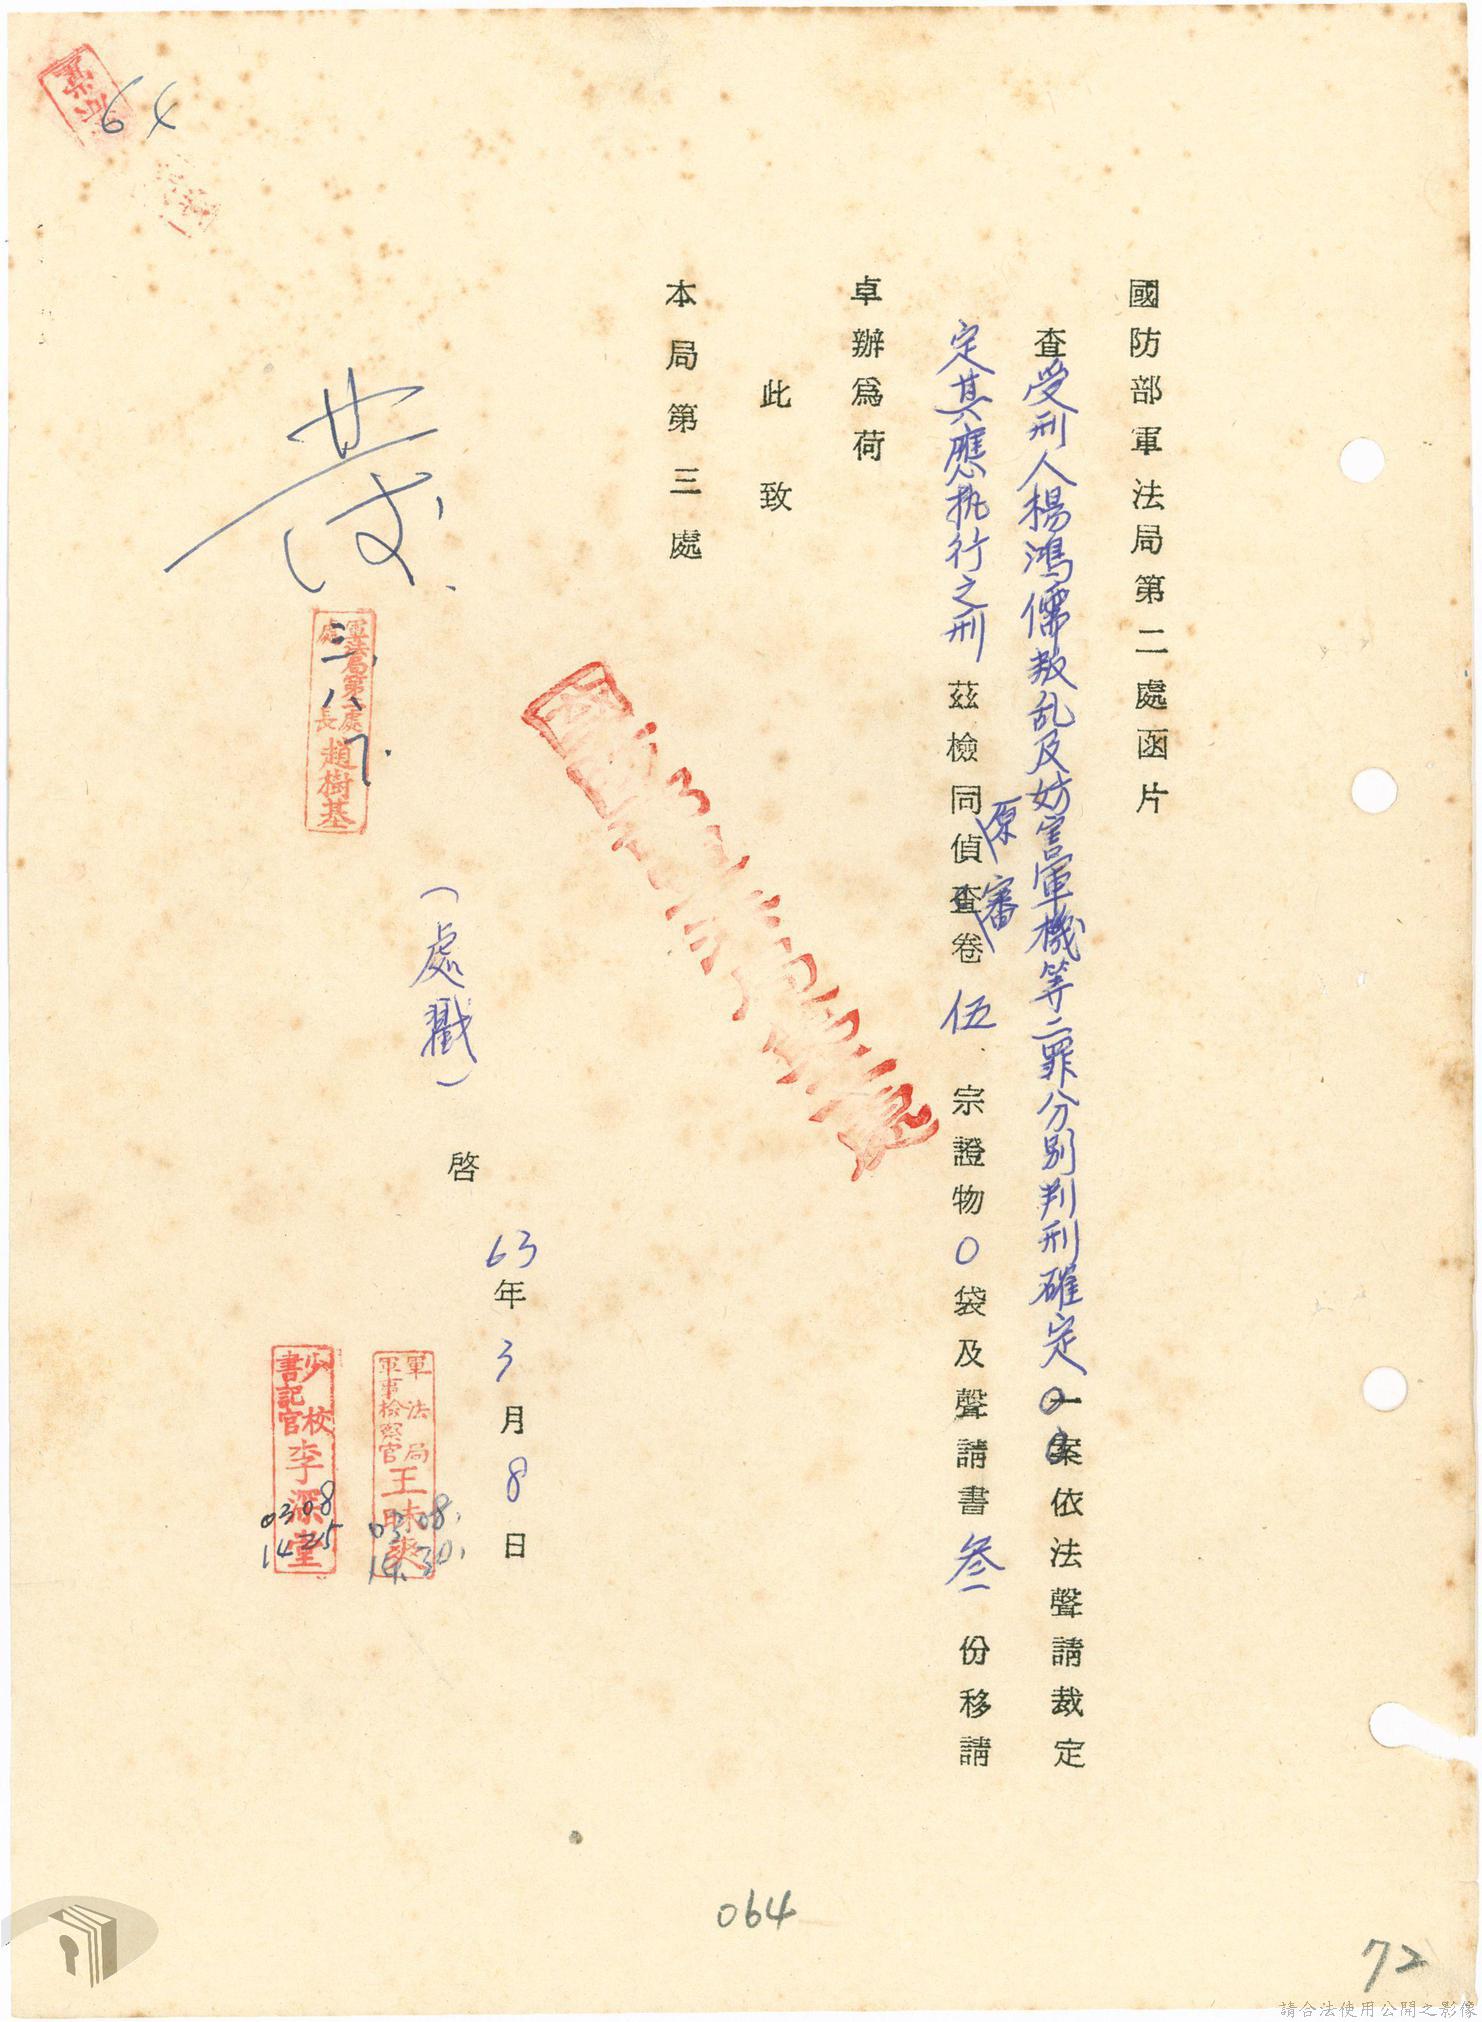 國防部軍法局第二處函片
查受刑人楊鴻儒叛乱及妨害軍機等二罪分別判刑確定一案依法聲請裁定
定其應执行之刑茲檢同偵查卷伍宗證物0袋及聲請書叁份移請
原審
卓辦為荷
此致
本局第三處
(處戳)
啓
63年3月8日
軍法局
軍事檢察官
王昧爽
03 08.
14.30.
少校
書記官
李深堂
03 08
14 25
軍法局第二處
處長
趙樹基
三、八、
64
064
72
請合法使用公開之影像